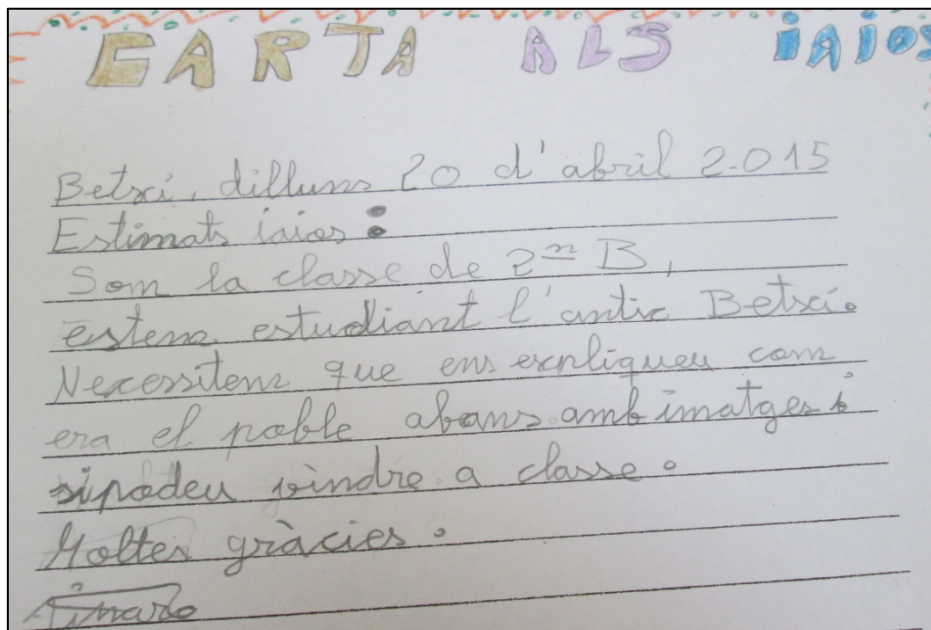 CARTA ALS IAIOS
Betxí, dilluns 20 d'abril 2.015
Estimats iaios:
Som la classe de 2n B,
estem estudiant l'antic Betxí.
Necessitem que ens expliqueu com
era el poble abans amb imatges i
si podeu vindre a classe.
Moltes gràcies.